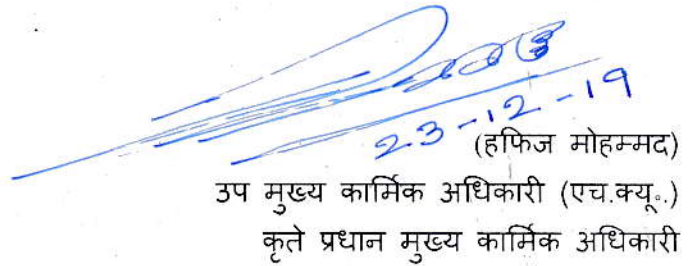 23-12-19
(हफिज मोहम्मद)
उप मुख्य कार्मिक अधिकारी (एच.क्यू.)
कृते प्रधान मुख्य कार्मिक अधिकारी